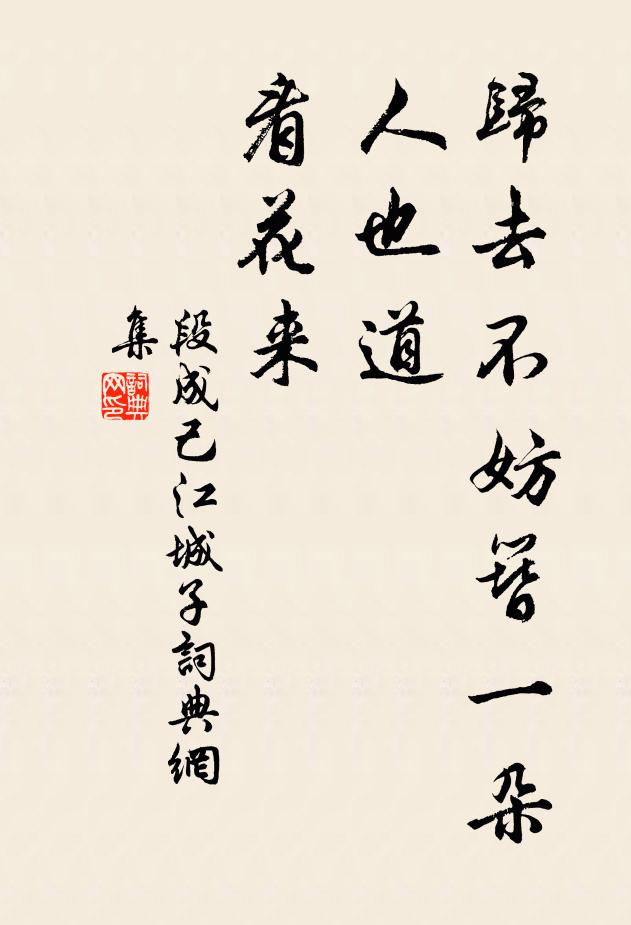 歸去不妨簪一朵
人也道
看花来
段成己江城子詞典網
集
詞典
网印